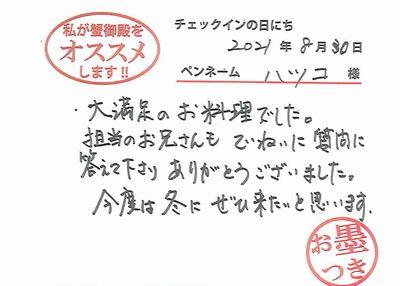 私が蟹御殿を
オススメ
します!!
チェックインの日にち
2021年8月30日
ペンネーム ハツコ 様
・大満足のお料理でした。
担当のお兄さんも ていねいに 質問に
答えて下さり ありがとうございました。
今度は冬に ぜひ来たいと思います。
お墨
つき